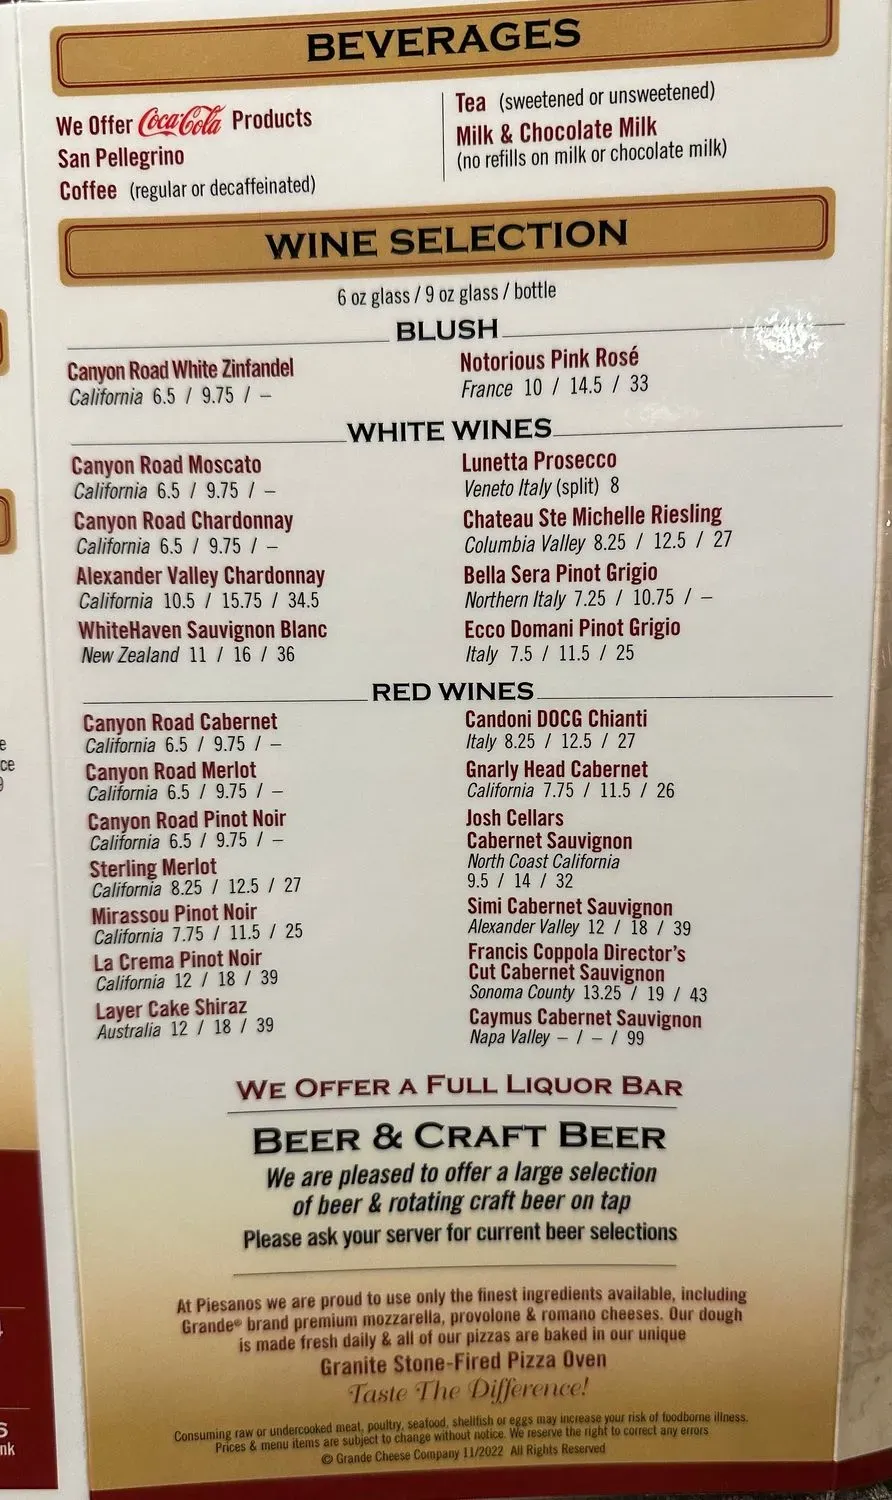 BEVERAGES
We Offer Coca-Cola Products
San Pellegrino
Coffee (regular or decaffeinated)
Tea (sweetened or unsweetened)
Milk & Chocolate Milk
(no refills on milk or chocolate milk)
WINE SELECTION
6 oz glass / 9 oz glass / bottle
BLUSH
Canyon Road White Zinfandel
California 6.5 / 9.75 / –
Notorious Pink Rosé
France 10 / 14.5 / 33
WHITE WINES
Canyon Road Moscato
California 6.5 / 9.75 / –
Canyon Road Chardonnay
California 6.5 / 9.75 / –
Alexander Valley Chardonnay
California 10.5 / 15.75 / 34.5
WhiteHaven Sauvignon Blanc
New Zealand 11 / 16 / 36
Lunetta Prosecco
Veneto Italy (split) 8
Chateau Ste Michelle Riesling
Columbia Valley 8.25 / 12.5 / 27
Bella Sera Pinot Grigio
Northern Italy 7.25 / 10.75 / –
Ecco Domani Pinot Grigio
Italy 7.5 / 11.5 / 25
RED WINES
Canyon Road Cabernet
California 6.5 / 9.75 / –
Canyon Road Merlot
California 6.5 / 9.75 / –
Canyon Road Pinot Noir
California 6.5 / 9.75 / –
Sterling Merlot
California 8.25 / 12.5 / 27
Mirassou Pinot Noir
California 7.75 / 11.5 / 25
La Crema Pinot Noir
California 12 / 18 / 39
Layer Cake Shiraz
Australia 12 / 18 / 39
Candoni DOCG Chianti
Italy 8.25 / 12.5 / 27
Gnarly Head Cabernet
California 7.75 / 11.5 / 26
Josh Cellars
Cabernet Sauvignon
North Coast California
9.5 / 14 / 32
Simi Cabernet Sauvignon
Alexander Valley 12 / 18 / 39
Francis Coppola Director's
Cut Cabernet Sauvignon
Sonoma County 13.25 / 19 / 43
Caymus Cabernet Sauvignon
Napa Valley – / – / 99
WE OFFER A FULL LIQUOR BAR
BEER & CRAFT BEER
We are pleased to offer a large selection
of beer & rotating craft beer on tap
Please ask your server for current beer selections
At Piesanos we are proud to use only the finest ingredients available, including
Grande® brand premium mozzarella, provolone & romano cheeses. Our dough
is made fresh daily & all of our pizzas are baked in our unique
Granite Stone-Fired Pizza Oven
Taste The Difference!
Consuming raw or undercooked meat, poultry, seafood, shellfish or eggs may increase your risk of foodborne illness.
Prices & menu items are subject to change without notice. We reserve the right to correct any errors
© Grande Cheese Company 11/2022 All Rights Reserved